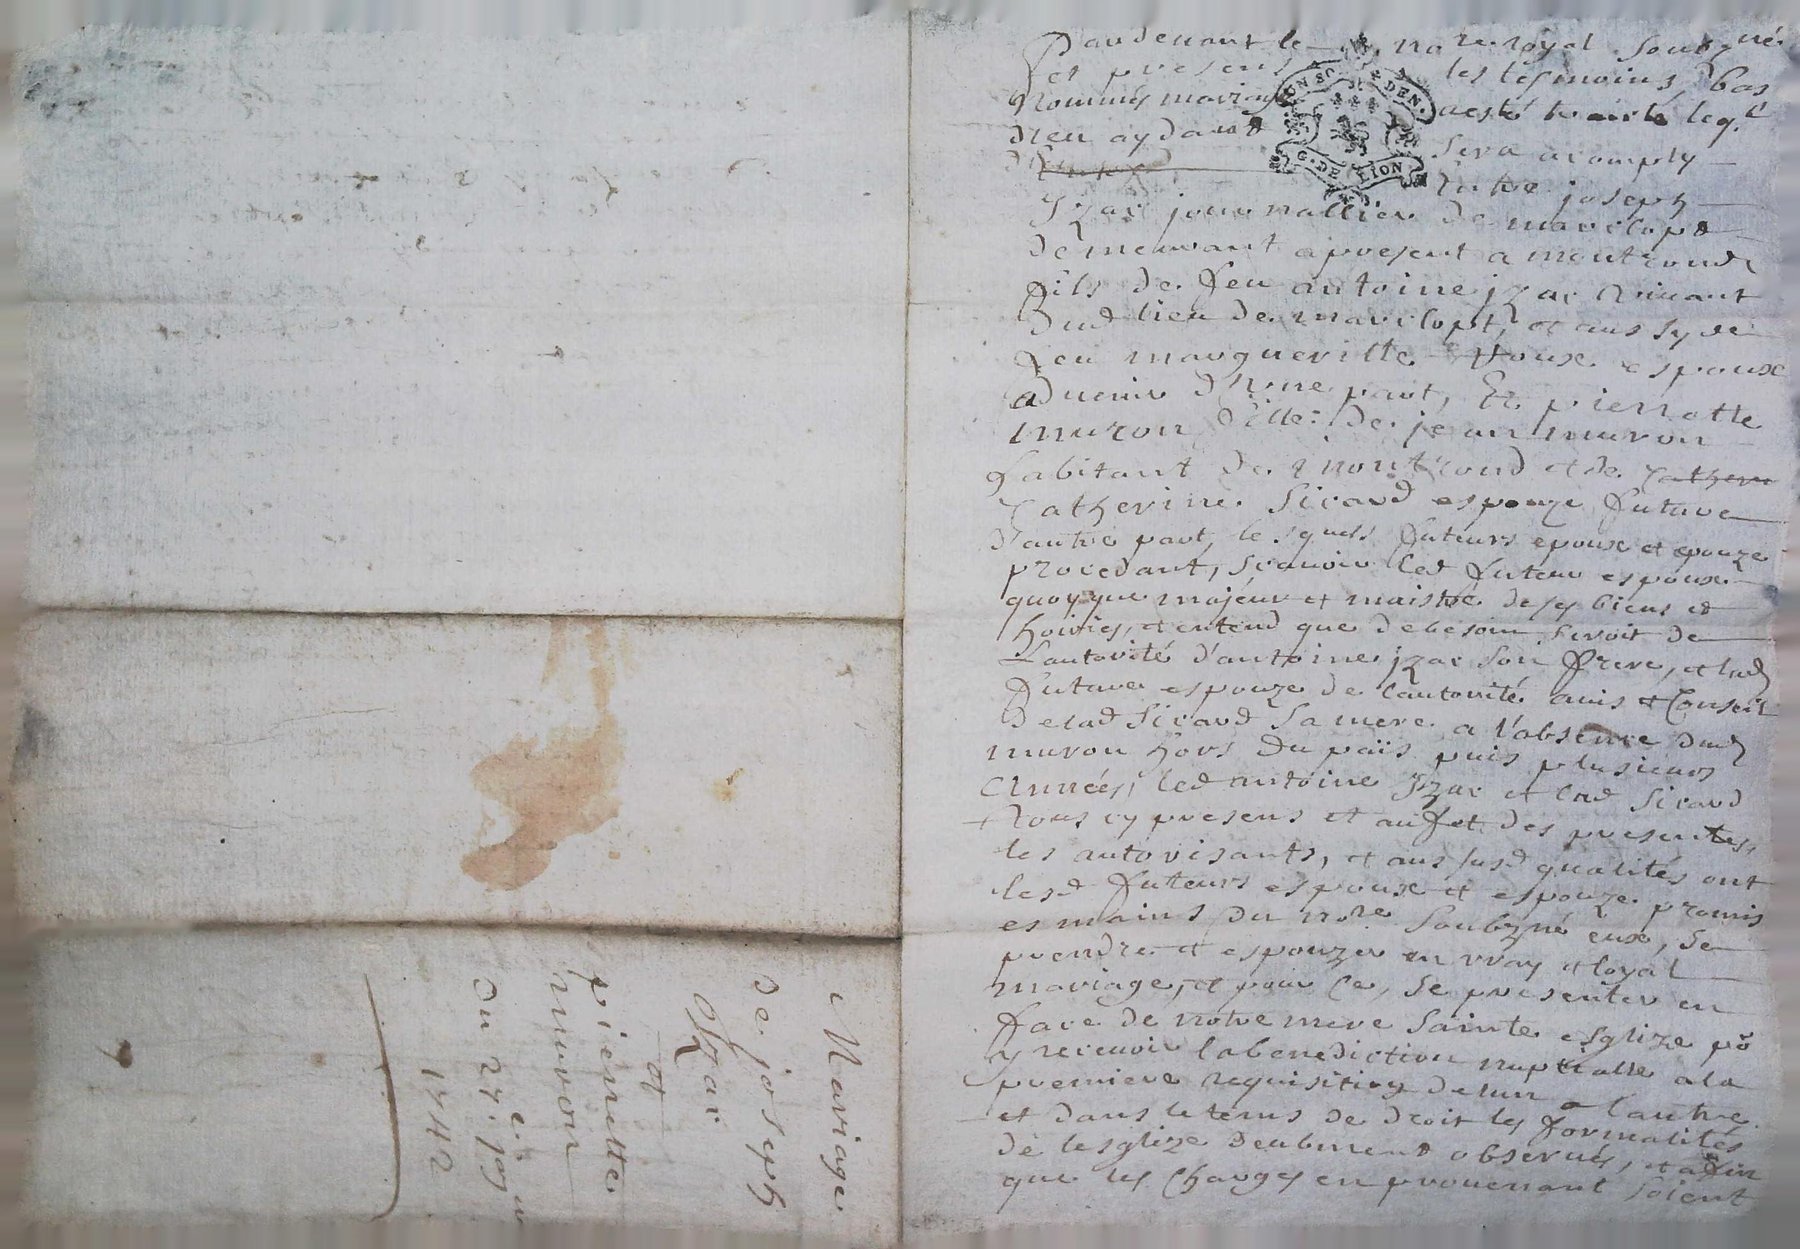 Mariage
de joseph
Izar
et
pierrette
muron
du 27.e juin
1742
Pardevant le no.re royal soubz.né
et presens les tesmoins, bas
nommés mariage a esté traité leq.l
dieu aydant sera acomply
Entre joseph
Izar journallier de marclopt
demeurant a present a montrond
fils de feu antoine jzar vivant
dud lieu de marclopt, et aussy de
feu margueritte espoux
advenir d'une part, Et pierrette
muron fille de jean muron
habitant de montrond et de Cathern
Catherine Sicard espouze future
d'autre part, lesquels futurs epoux et epouze
procedant, scavoir led futeur espoux
quoyque majeur et maistre de ses biens et
hoiries, et entend que de besoin seroit de
L'autorité d'antoine jzar son frere, et lad
future espouze de l'autorité avis et Conseil
de lad Sicard sa mere a l'absence dud
muron hors du païs puis plusieurs
Années, led antoine Izar et lad Sicard
tous cy presens et au fet des presentes,
les autorisants, et aus susd qualités ont
lesd futeurs espoux et espouze promis
es mains du no.re soubzné eux, se
prendre et espouzer en vray et loyal
mariage, et pour ce, se presenter en
face de notre mere sainte esglize po.
y recevoir la benediction nuptialle a la
premiere requisition de lun a lautre
et dans le tems de droit les formalités
de lesglize deubment observées, et afin
que les charges en provenant soient
G. DE LION